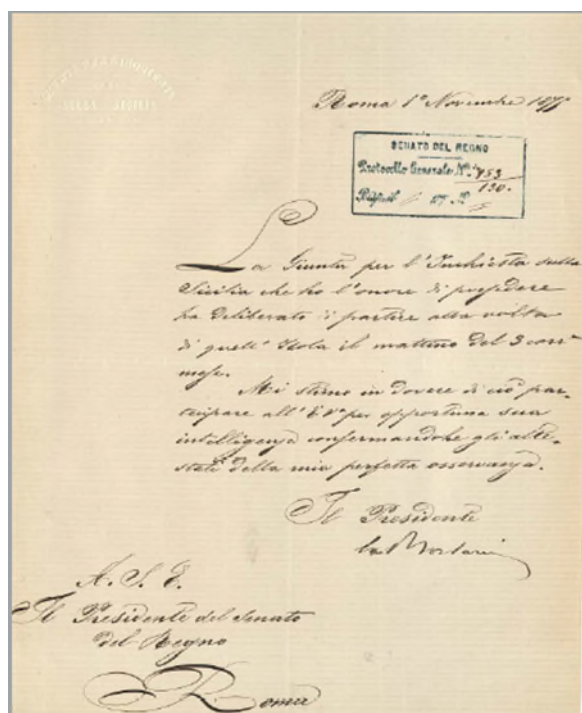 Roma 1º Novembre 1875
SENATO DEL REGNO
Protocollo Generale Nº 753
130.
La Giunta per l'Inchiesta sulla
Sicilia che ho l'onore di presiedere
ha deliberato di partire alla volta
di quell'Isola il mattino del 3 corr.e
mese.
Mi stimo in dovere di ciò par-
tecipare all'E.V. per opportuna sua
intelligenza confermandole gli atte-
stati della mia perfetta osservanza.
Il Presidente
A. S. E.
Il Presidente del Senato
del Regno
Roma